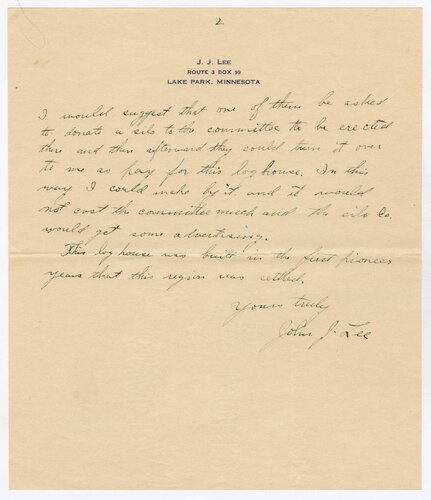 2
J. J. LEE
ROUTE 3 BOX 99
LAKE PARK, MINNESOTA
I would suggest that one of them be asked
to donate a silo to the committee to be erected
there and then afterward they could turn it over
to me as pay for this log house. In this
way I could make by it and it would
not cost the committee much and the silo Co.
would get some advertising.
This log house was built in the first pioneer
years that this region was settled.
Yours truly
John J. Lee